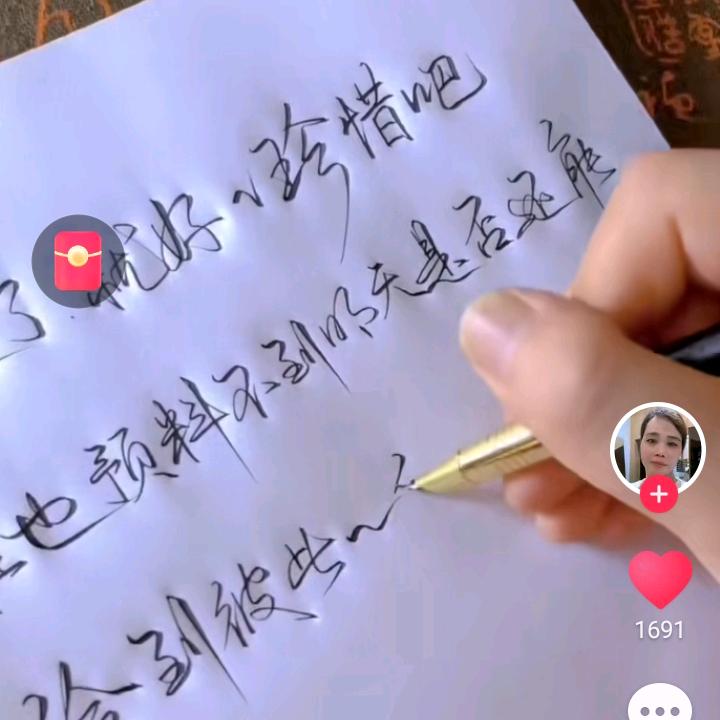 了.就好、珍惜吧
也预料不到明天是否还能
到彼此~
1691